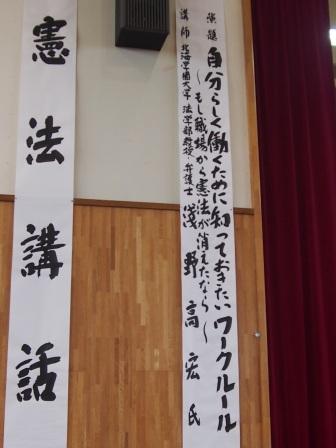 憲法講話
演題 自分らしく働くために知っておきたいワークルール
～もし職場から憲法が消えたなら～
講師 北海学園大学 法学部教授・弁護士 淺野高宏氏